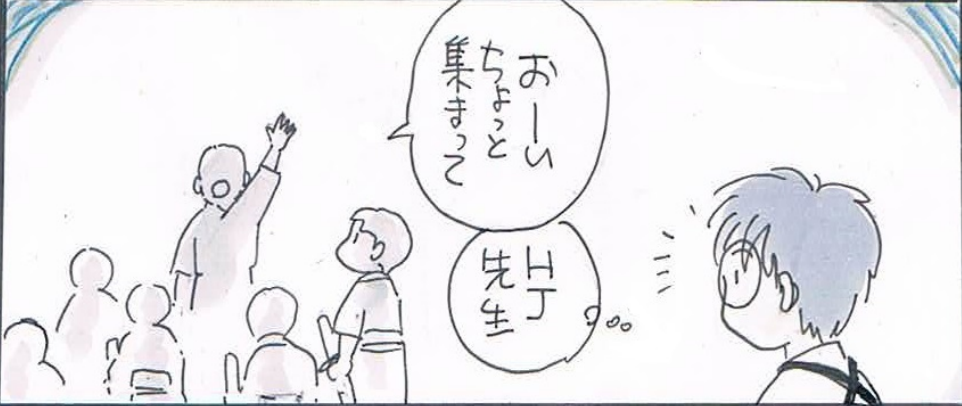 おーい
ちょっと
集まって
HJ
先生